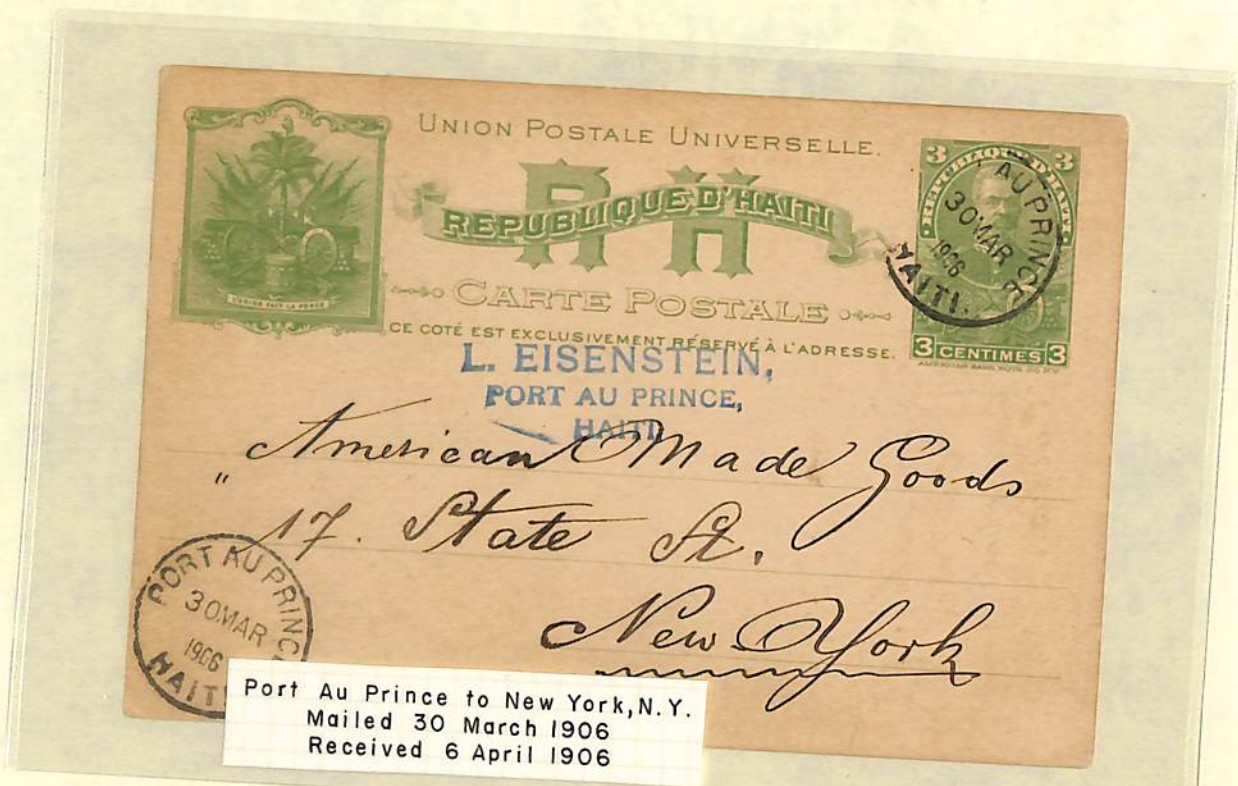 UNION POSTALE UNIVERSELLE.
RH
REPUBLIQUE D'HAITI
CARTE POSTALE
CE COTÉ EST EXCLUSIVEMENT RÉSERVÉ À L'ADRESSE.
L'UNION FAIT LA FORCE
3 3
REPUBLIQUE D'HAITI
3 CENTIMES 3
AMERICAN BANK NOTE CO. N.Y.
AU PRINCE
30 MAR
1906
HAITI.
L. EISENSTEIN,
PORT AU PRINCE,
HAITI
American Made Goods
" 17. State St.
New York
PORT AU PRINCE
30 MAR
1906
HAITI
Port Au Prince to New York, N.Y.
Mailed 30 March 1906
Received 6 April 1906